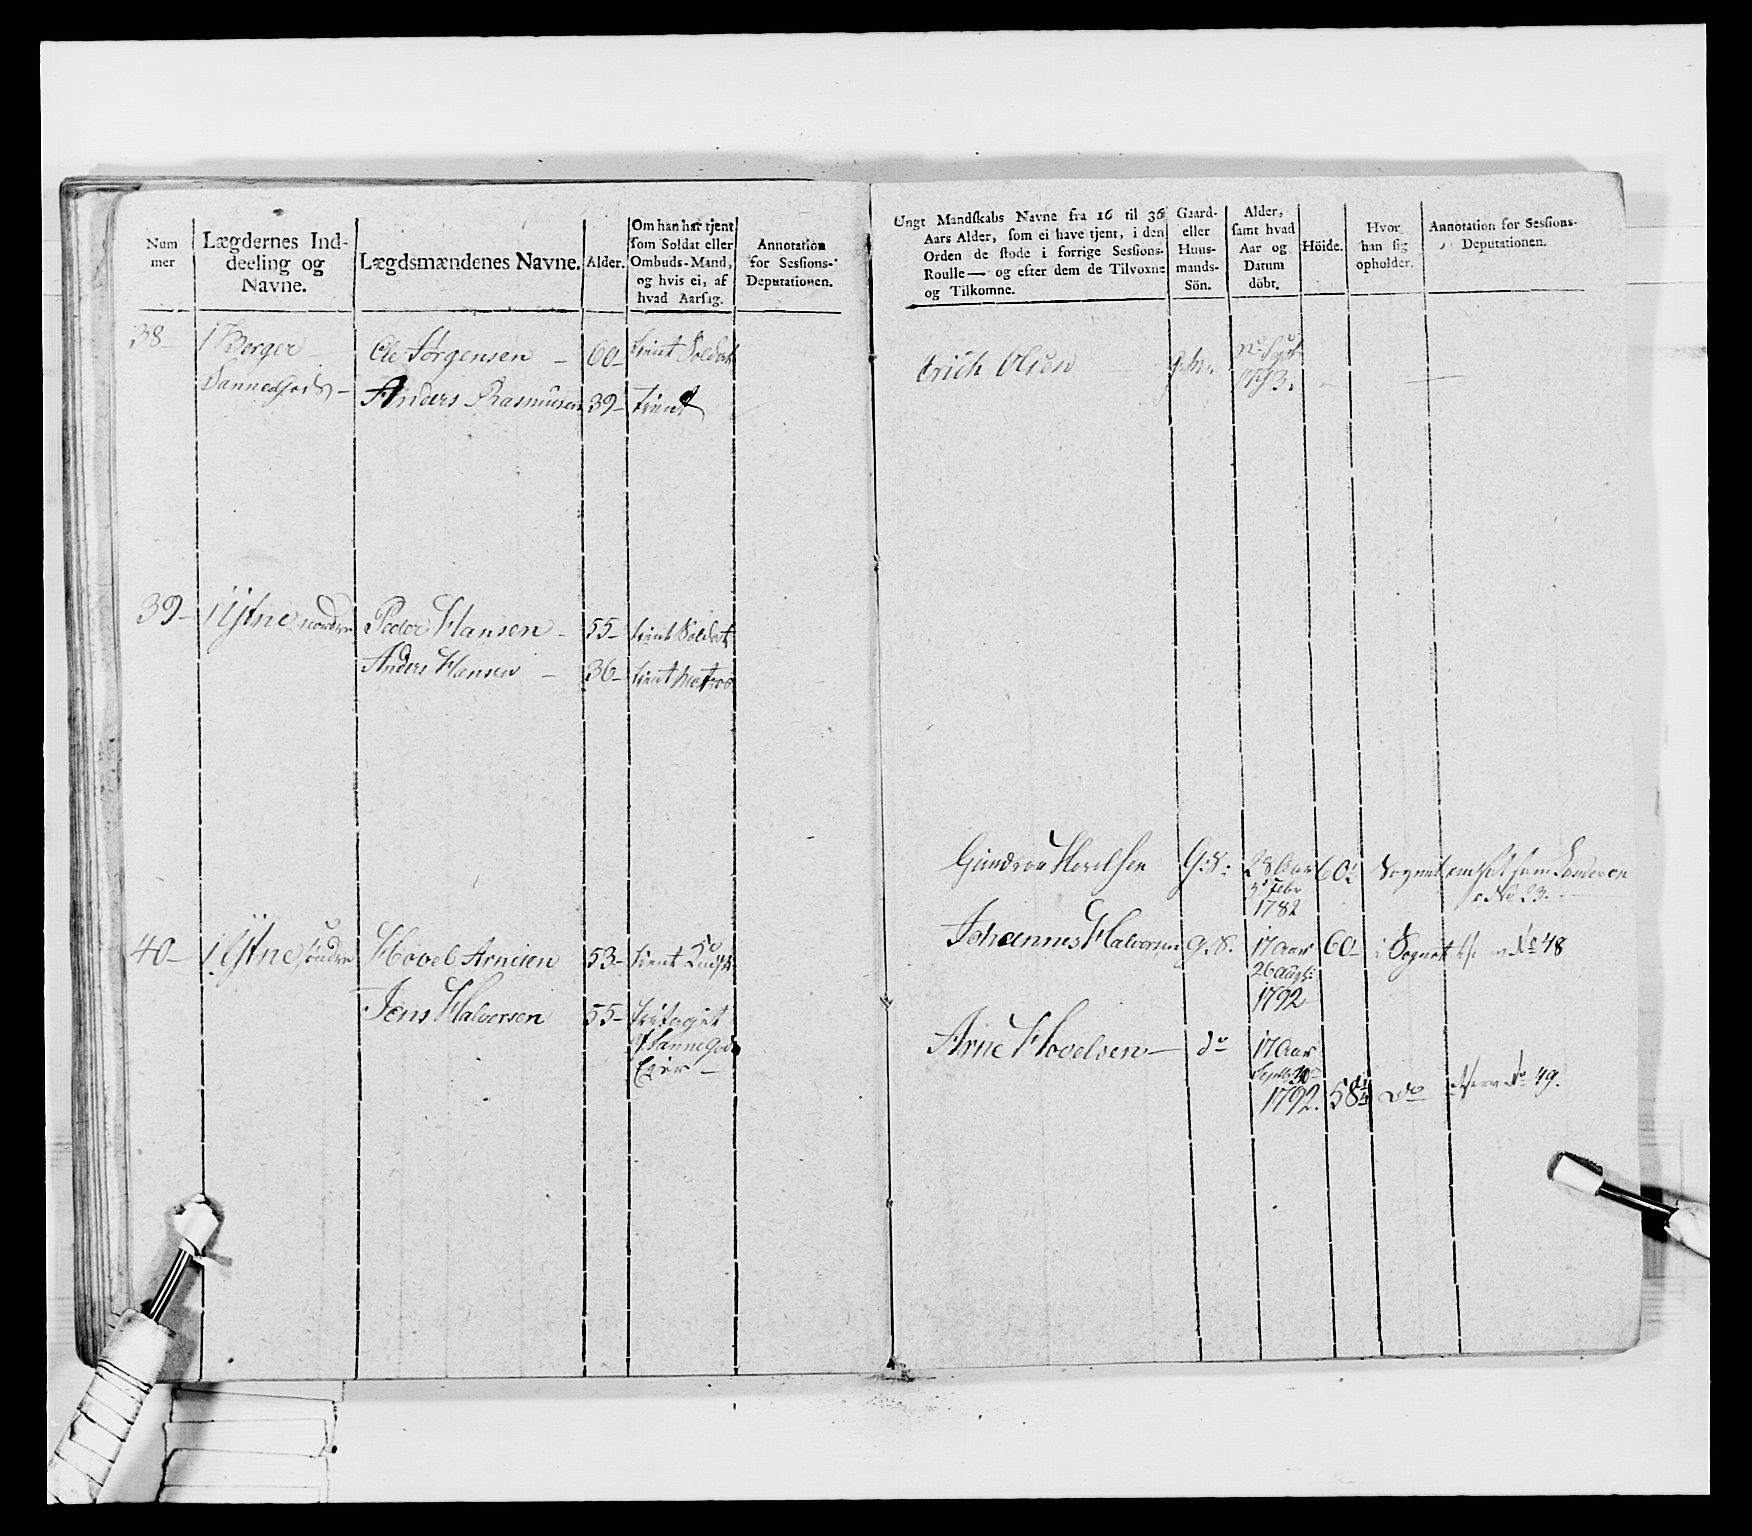 Num
mer
Lægdernes Ind-
deeling og
Navne.
Lægdsmændenes Navne.
Alder.
Om han har tjent
som Soldat eller
Ombuds-Mand,
og hvis ei, af
hvad Aarsag.
Annotation
for Sessions-
Deputationen.
38
1 Berger
Ole Jørgensen
60
tient Soldat
Anders Rasmusen
39
tient
39
1 Ystne nordre
Peder Hansen
55
tient Soldat
Anders Hansen
36
tient Matros
40
1 Ystne søndre
Hovel Arnesen
53
tient
Jens Halvorsen
55
Eier
Ungt Mandskabs Navne fra 16 til 36
Aars Alder, som ei have tjent, i den
Orden de stode i forrige Sessions-
Roulle— og efter dem de Tilvoxne
og Tilkomne.
Gaard-
eller
Huus-
mands-
Sön.
Alder,
samt hvad
Aar og
Datum
döbt.
Höide.
Hvor
han sig
opholder.
Annotation for Sessions-
Deputationen.
Erich Olsen
1793.
Gundror Hovelsen
G: S:
28 Aar
60
3d Febr
1782
No 23.
Johannes Halvorsen
G. S.
17 Aar
60
i Sognet
No 48
26 Augt:
1792
Arne Hovelsen
do
17 Aar
1792.
58 1/4
do
No 49.